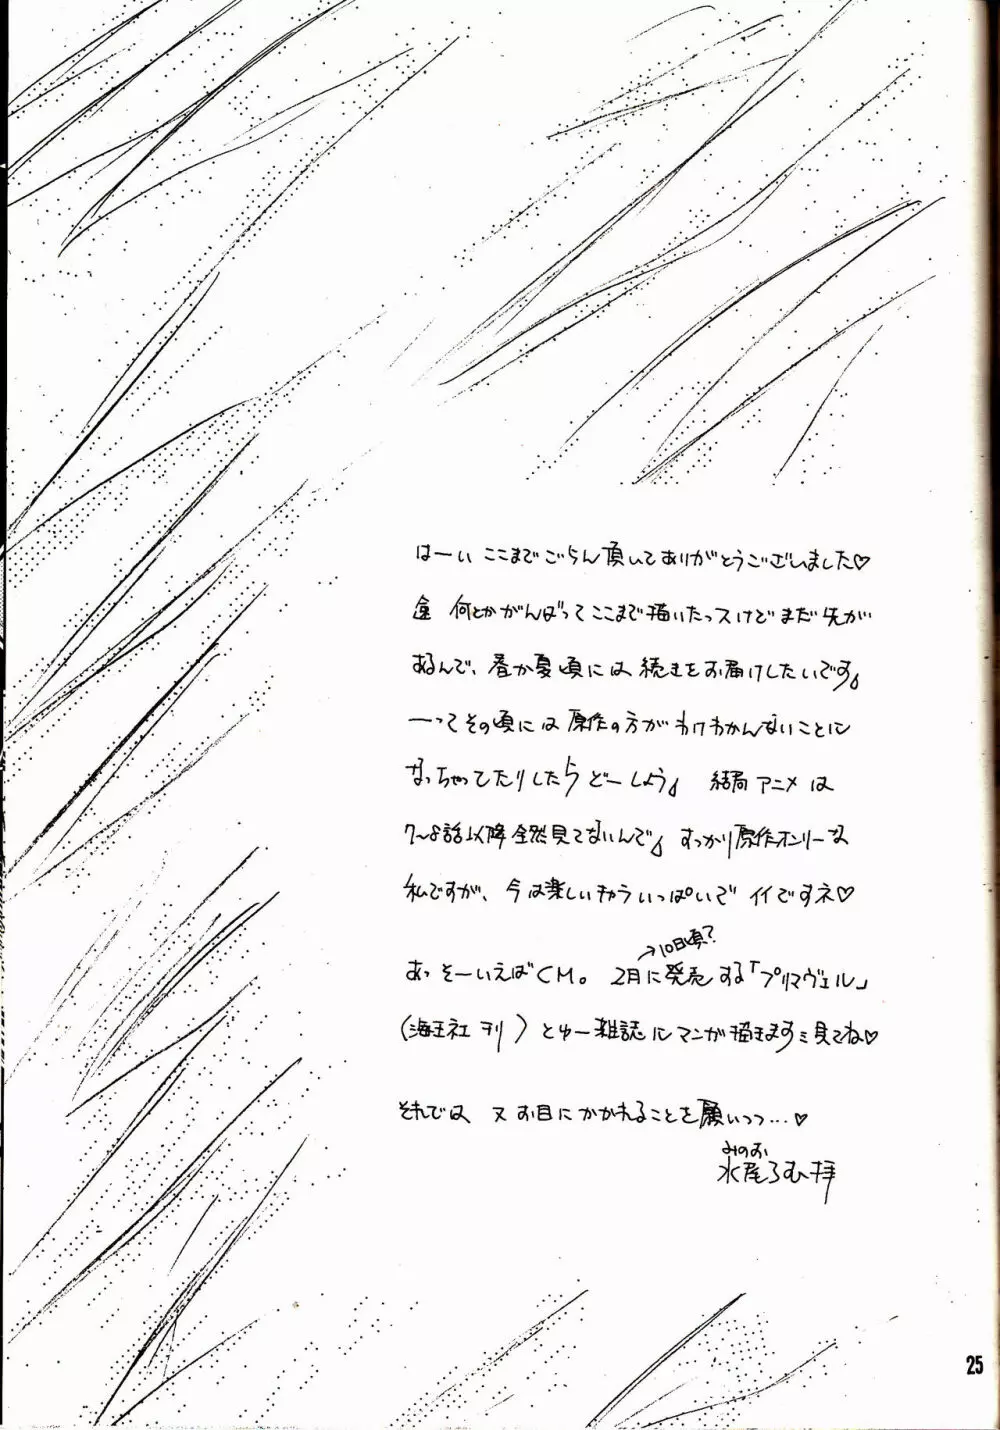 はーい ここまでごらん頂いてありがとうございました♡
何とかがんばってここまで描いたっスけどまだ先が
あるんで、春か夏頃には続きをお届けしたいです。
―ってその頃には原作の方がわけわかんないことに
なっちゃってたりしたらどーしよう。 結局アニメは
7~8話以降全然見てないんで。すっかり原作オンリーな
私ですが、今は楽しいキャラいっぱいでイイですネ♡
→10日頃?
あっそーいえばCM。 2月に発売する「プリマヴェール」
(海王社ヨリ)とゆー雑誌にマンガ描きます 見てね♡
それでは 又お目にかかれることを願いつつ…♡
みのお
水尾ろむ拝
25